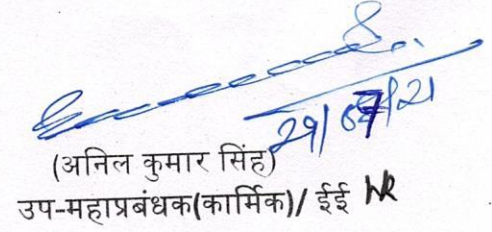 29/07/21
(अनिल कुमार सिंह)
उप-महाप्रबंधक(कार्मिक)/ ईई